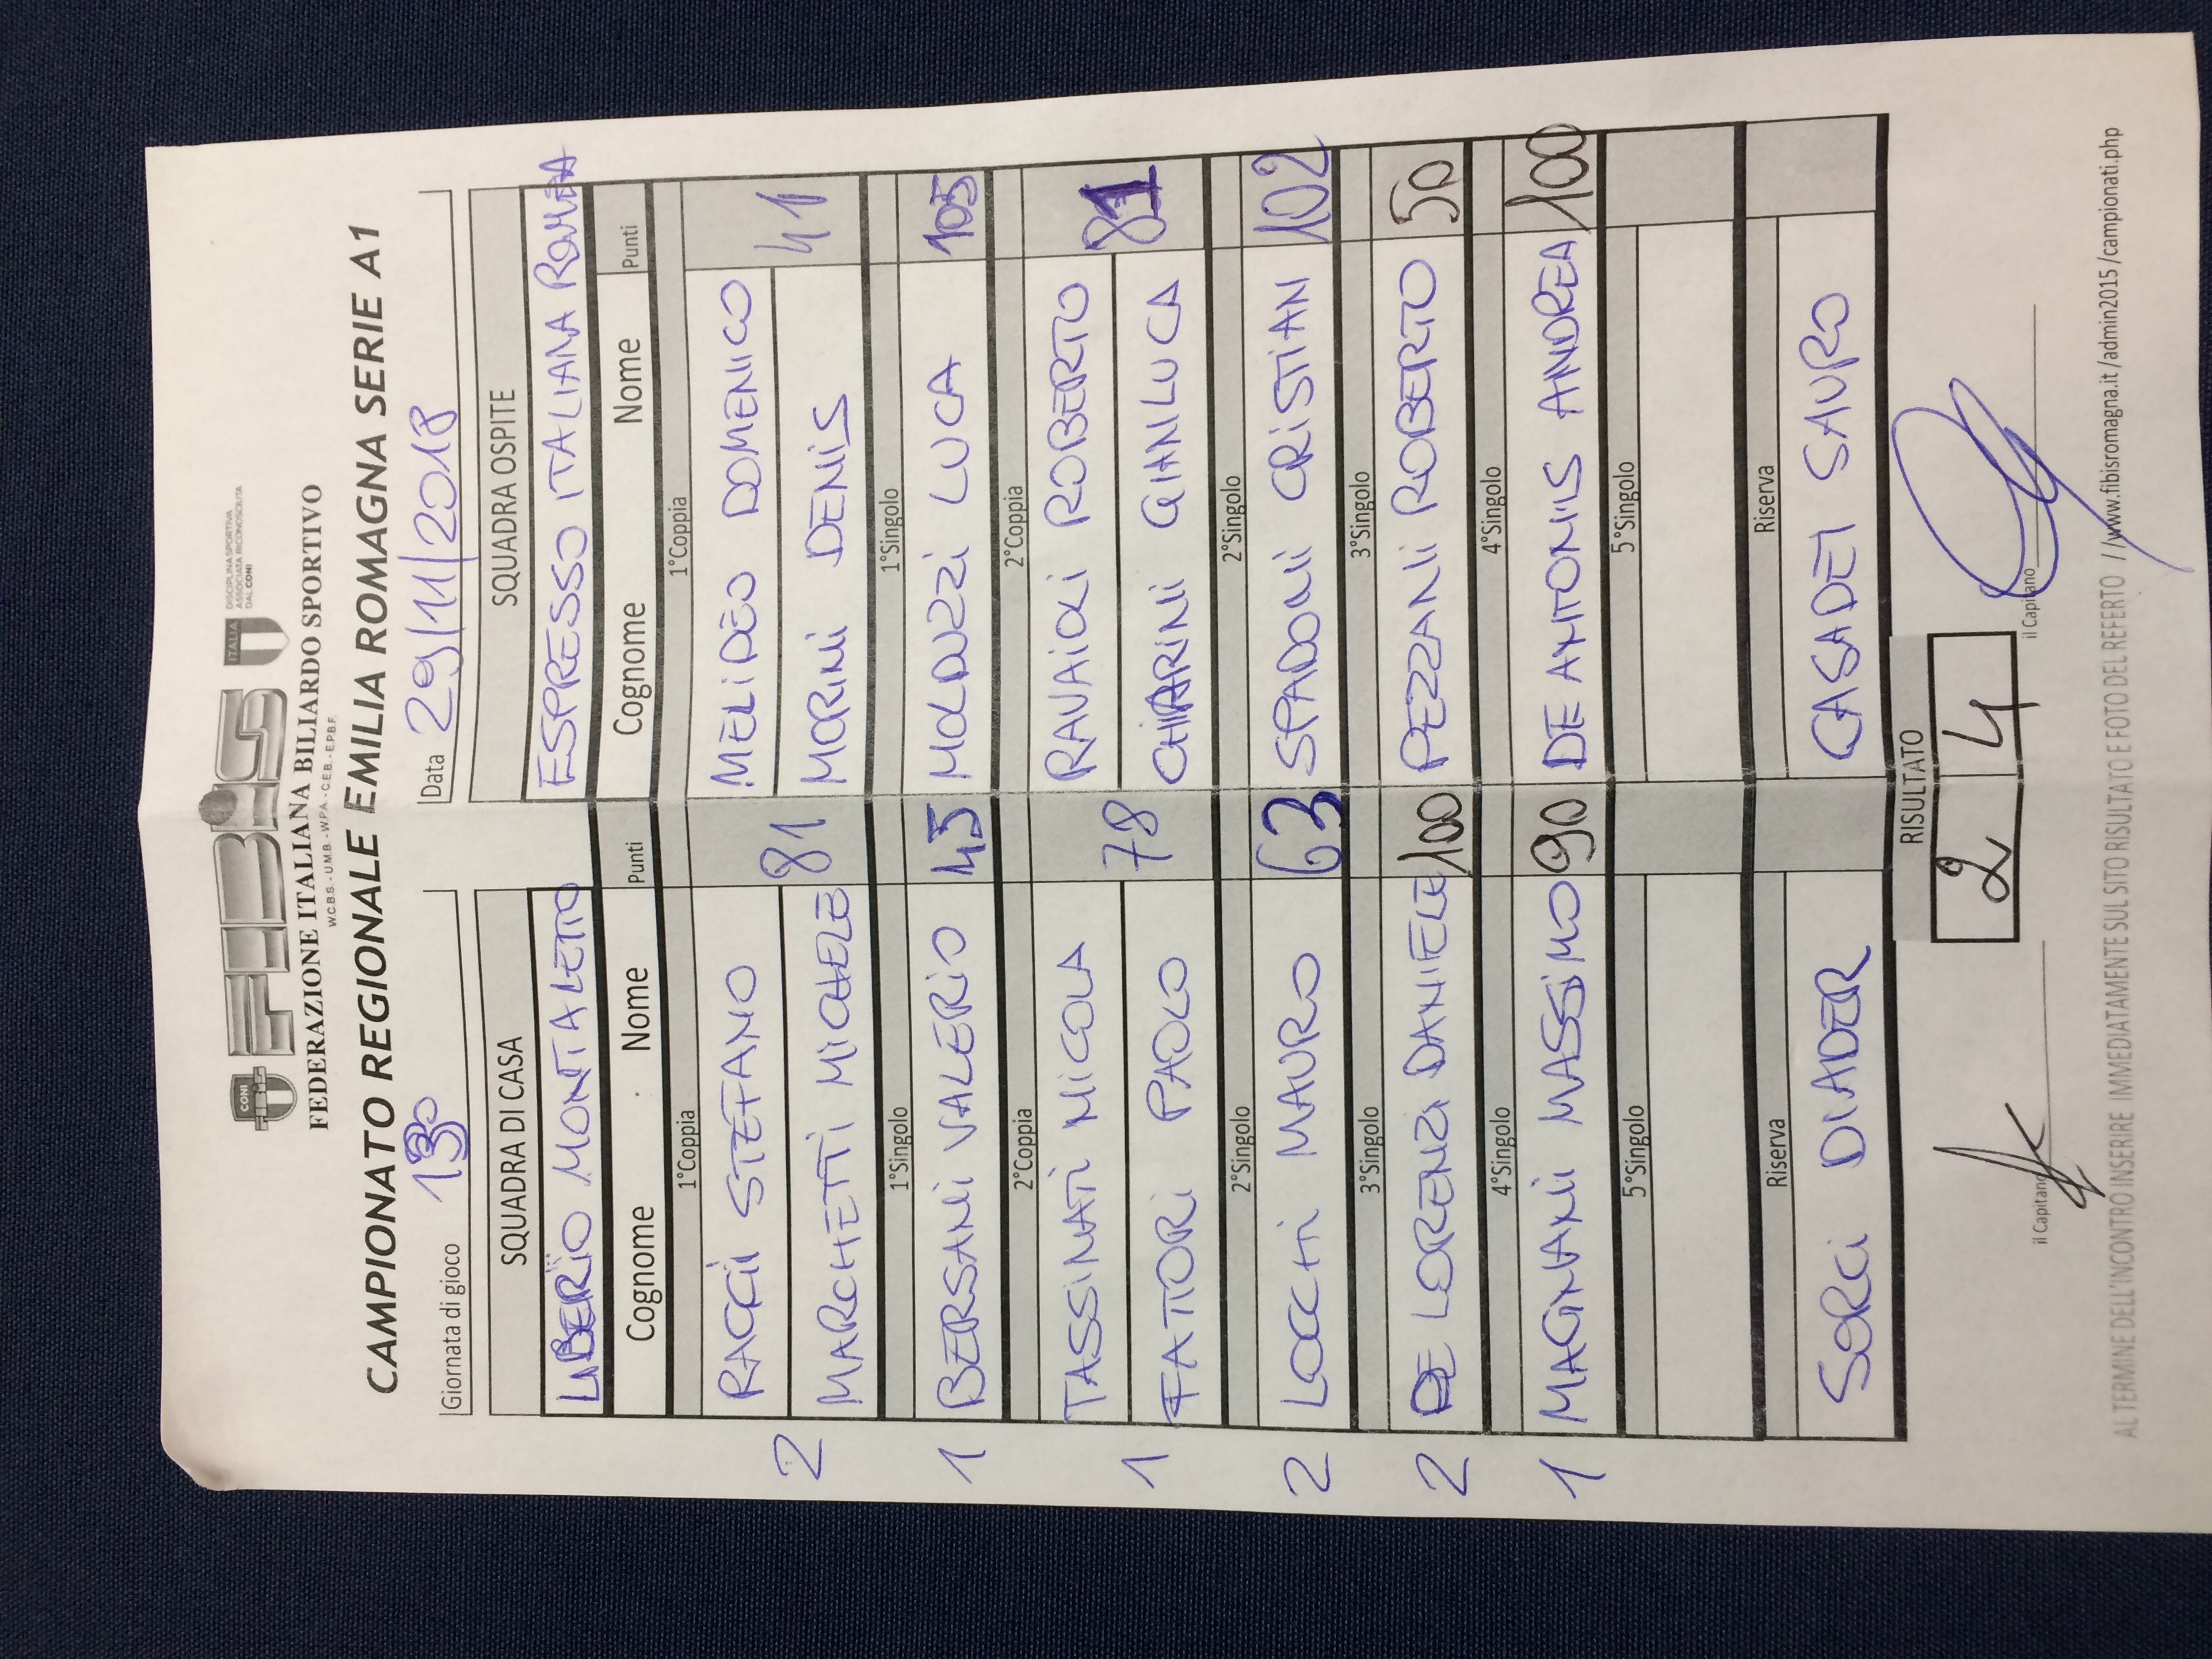 CONI FIBiS ITALIA DISCIPLINA SPORTIVA ASSOCIATA RICONOSCIUTA DAL CONI
FEDERAZIONE ITALIANA BILIARDO SPORTIVO
W.C.B.S. - U.M.B. - W.P.A. - C.E.B. - E.P.B.F.
CAMPIONATO REGIONALE EMILIA ROMAGNA SERIE A1
Giornata di gioco Data 29/11/2018
SQUADRA DI CASA SQUADRA OSPITE
LIBERIO MONTALETTO ESPRESSO ITALIANA ROMEA
Cognome Nome Punti Cognome Nome Punti
1°Coppia 1°Coppia
RAGGII STEFANO MELIDEO DOMENICO
2 MARCHETTI MICHELE 81 MORINI DENIS 41
1°Singolo 1°Singolo
1 BERSANI VALERIO 45 MOLDUZZI LUCA 105
2°Coppia 2°Coppia
TASSINATI NICOLA RAVAIOLI ROBERTO
1 FATTORI PAOLO 78 CHIARINI GIANLUCA 81
2°Singolo 2°Singolo
2 LOCCHI MAURO 63 SPADONI CRISTIAN 102
3°Singolo 3°Singolo
2 DE LORENZI DANIELE 100 PEZZANI ROBERTO 50
4°Singolo 4°Singolo
1 MAGNANI MASSIMO 90 DE ANTONIIS ANDREA 100
5°Singolo 5°Singolo
Riserva Riserva
SORCI DIADER CASADEI SAURO
RISULTATO
2 4
il Capitano il Capitano
AL TERMINE DELL'INCONTRO INSERIRE IMMEDIATAMENTE SUL SITO RISULTATO E FOTO DEL REFERTO //www.fibisromagna.it /admin2015 /campionati.php